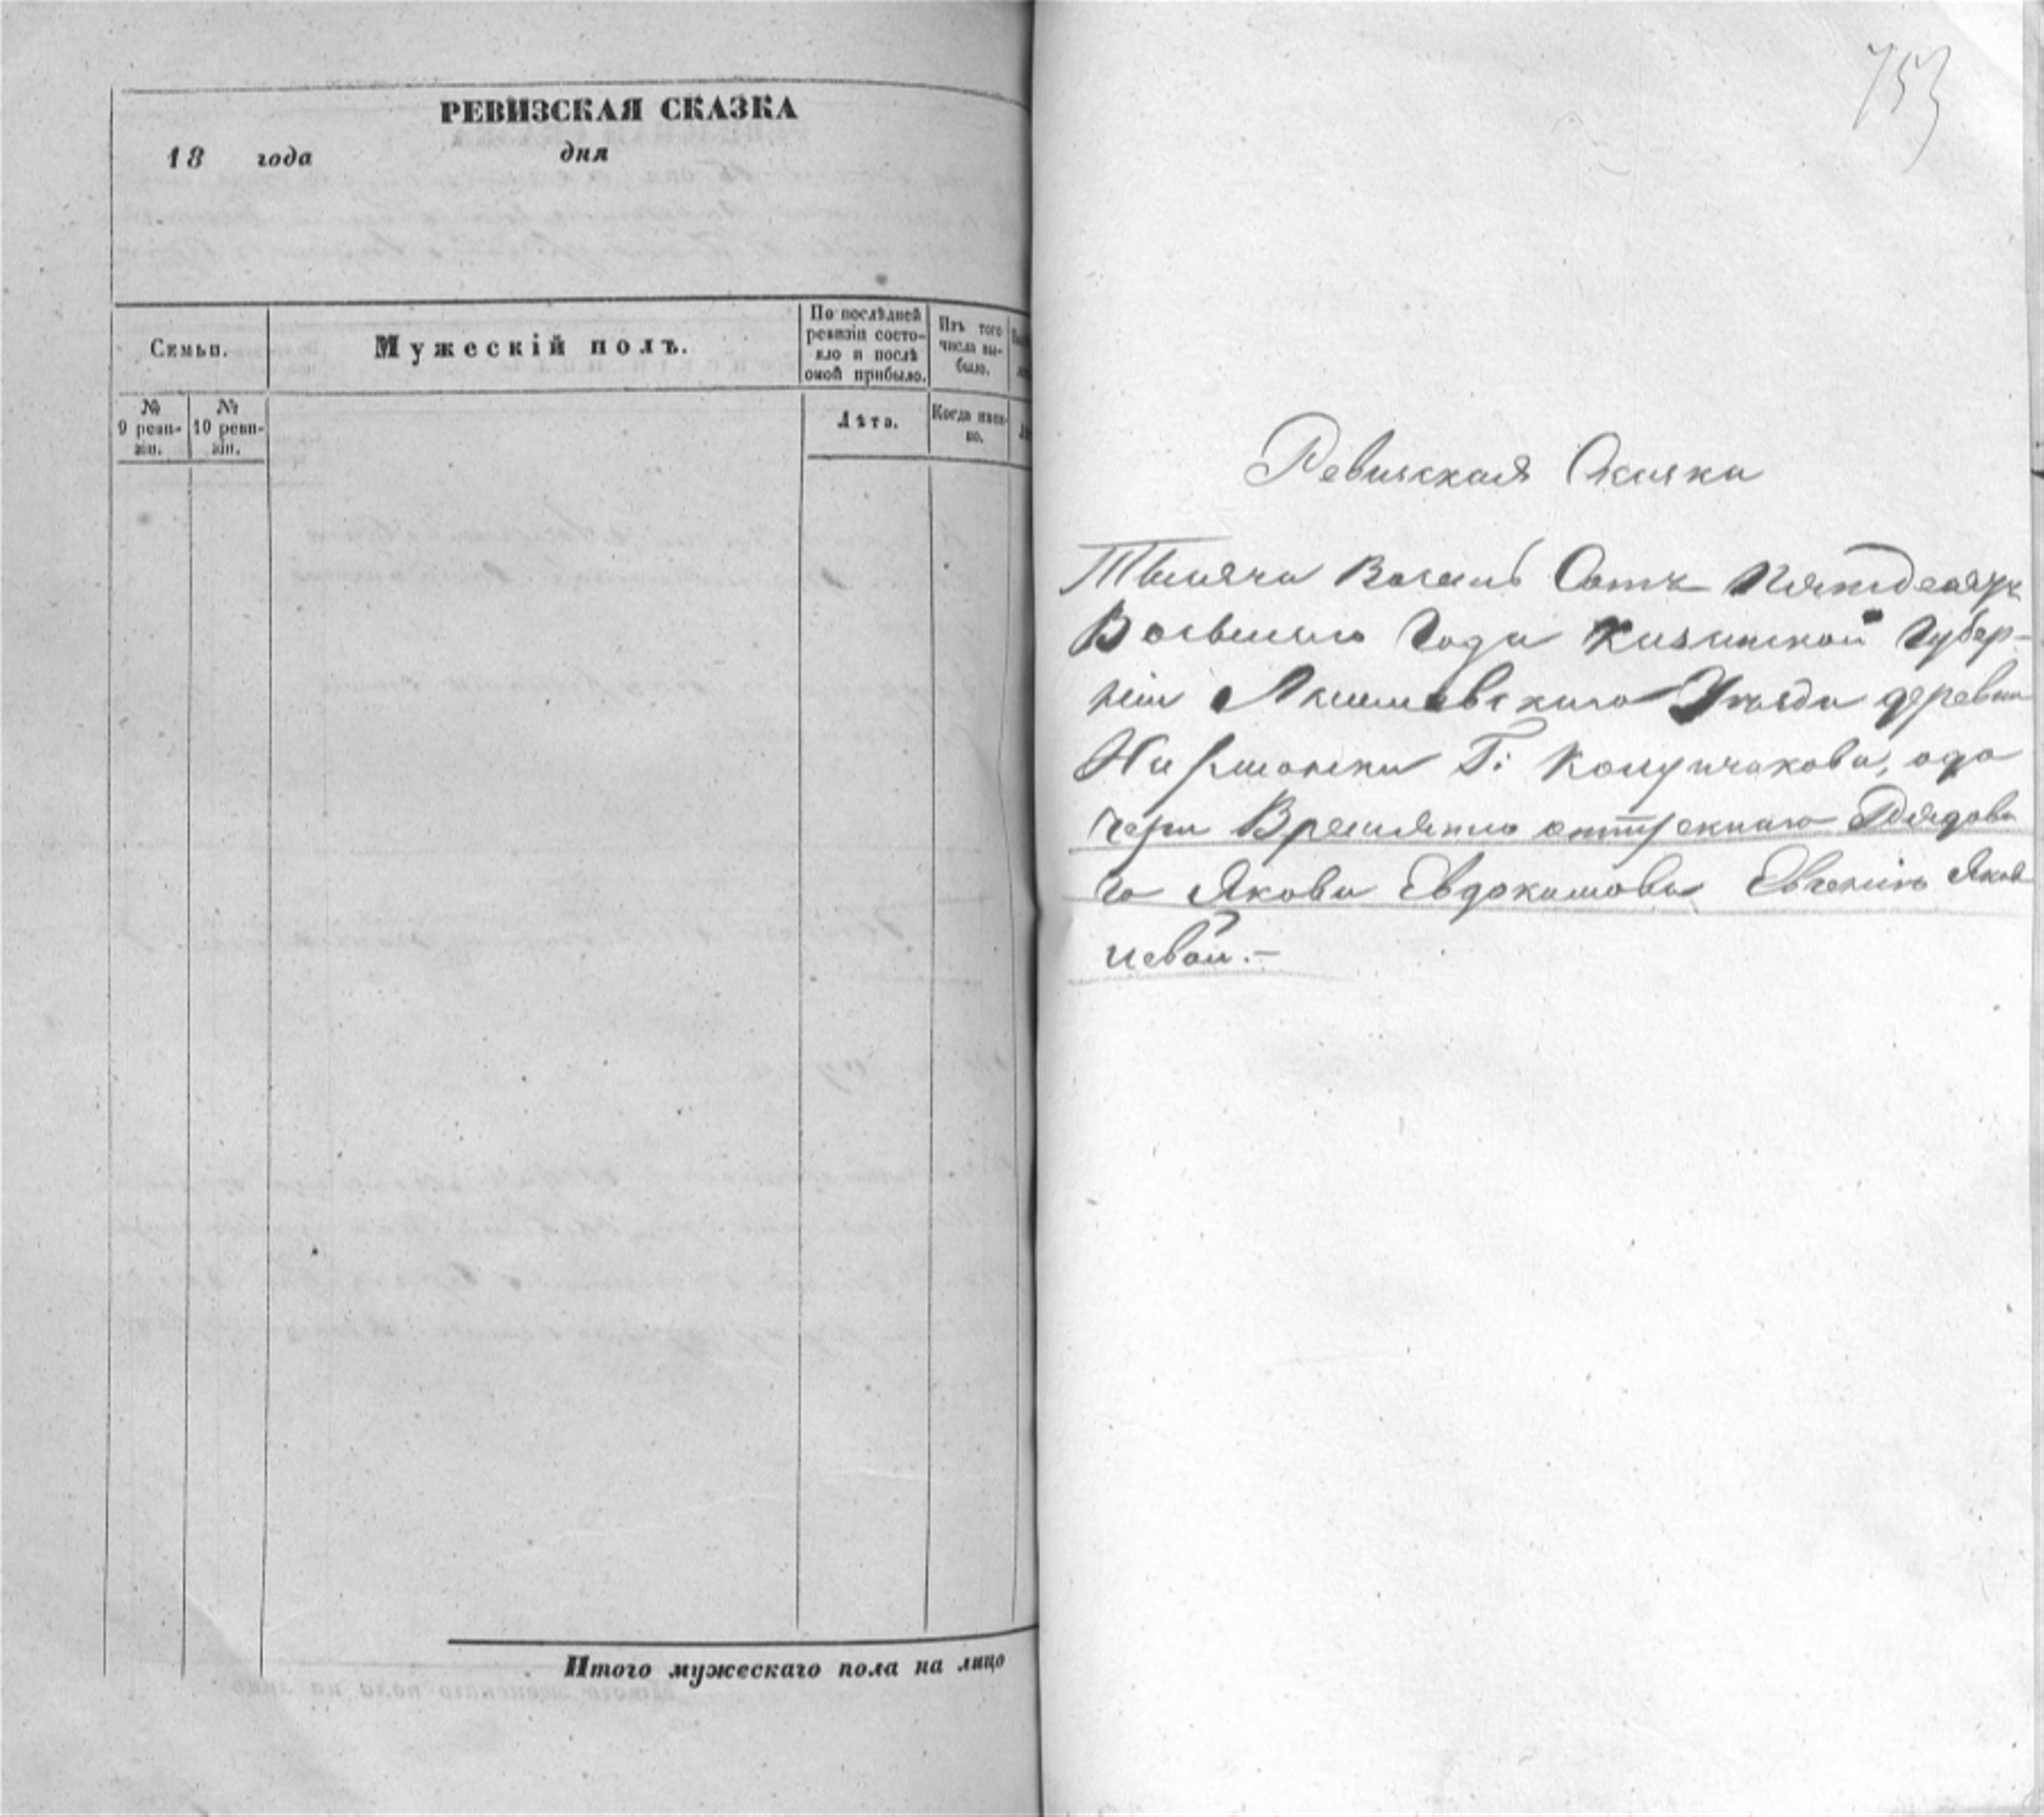 РЕВИЗСКАЯ СКАЗКА
18 года дня
Семьи.
Мужескій полъ.
По послѣдней
ревизіи состо-
яло и послѣ
оной прибыло.
Изъ того
числа вы-
было.
№
9 реви-
зіи.
№
10 реви-
зіи.
Лѣта.
Когда имен-
но.
Итого мужескаго пола на лицо
753
Ревизская Сказка
Тысяча Восемь Сотъ Пятьдесятъ
Восьмого Года Казанской Губер-
ніи Уѣзда деревни
Г:
Временно Рядова
го Якова Евдокимова Евгеніи Яков
левой.-